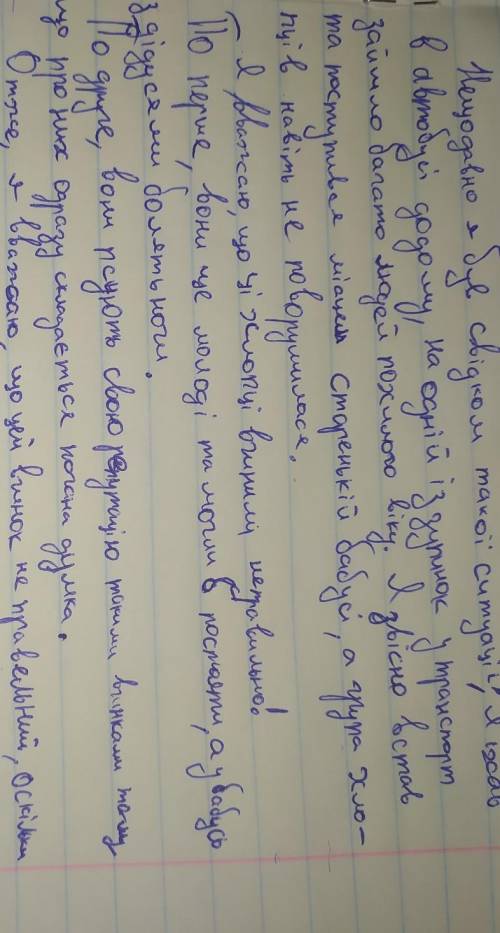 Нещодавно я був свідком такої ситуації, я їхав
в автобусі додому, на одній із зупинок у транспорт
зайшло багато людей похилого віку. Я звісно встав
та поступився місцем старенькій бабусі, а група хло-
пців навіть не поворушилася.
Я вважаю, що ці хлопці вчинили неправильно.
По перше, вони ще молоді та могли б постояти, а у бабусь
з дідусями болять ноги.
По друге, вони псують свою репутацію такими вчинками тому
що про них одразу складається погана думка.
Отже, я вважаю, що цей вчинок не правельний, оскільки